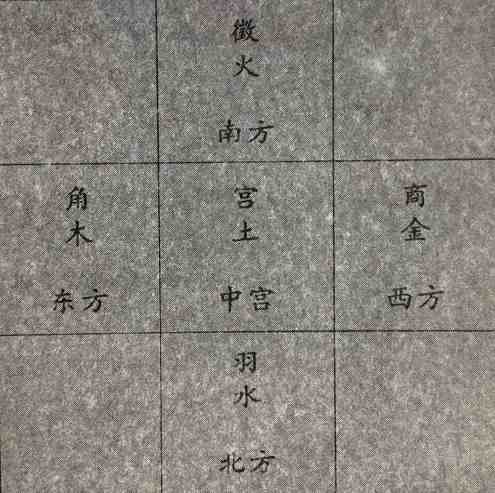 徵
火
南方
角
木
东方
宫
土
中宫
商
金
西方
羽
水
北方